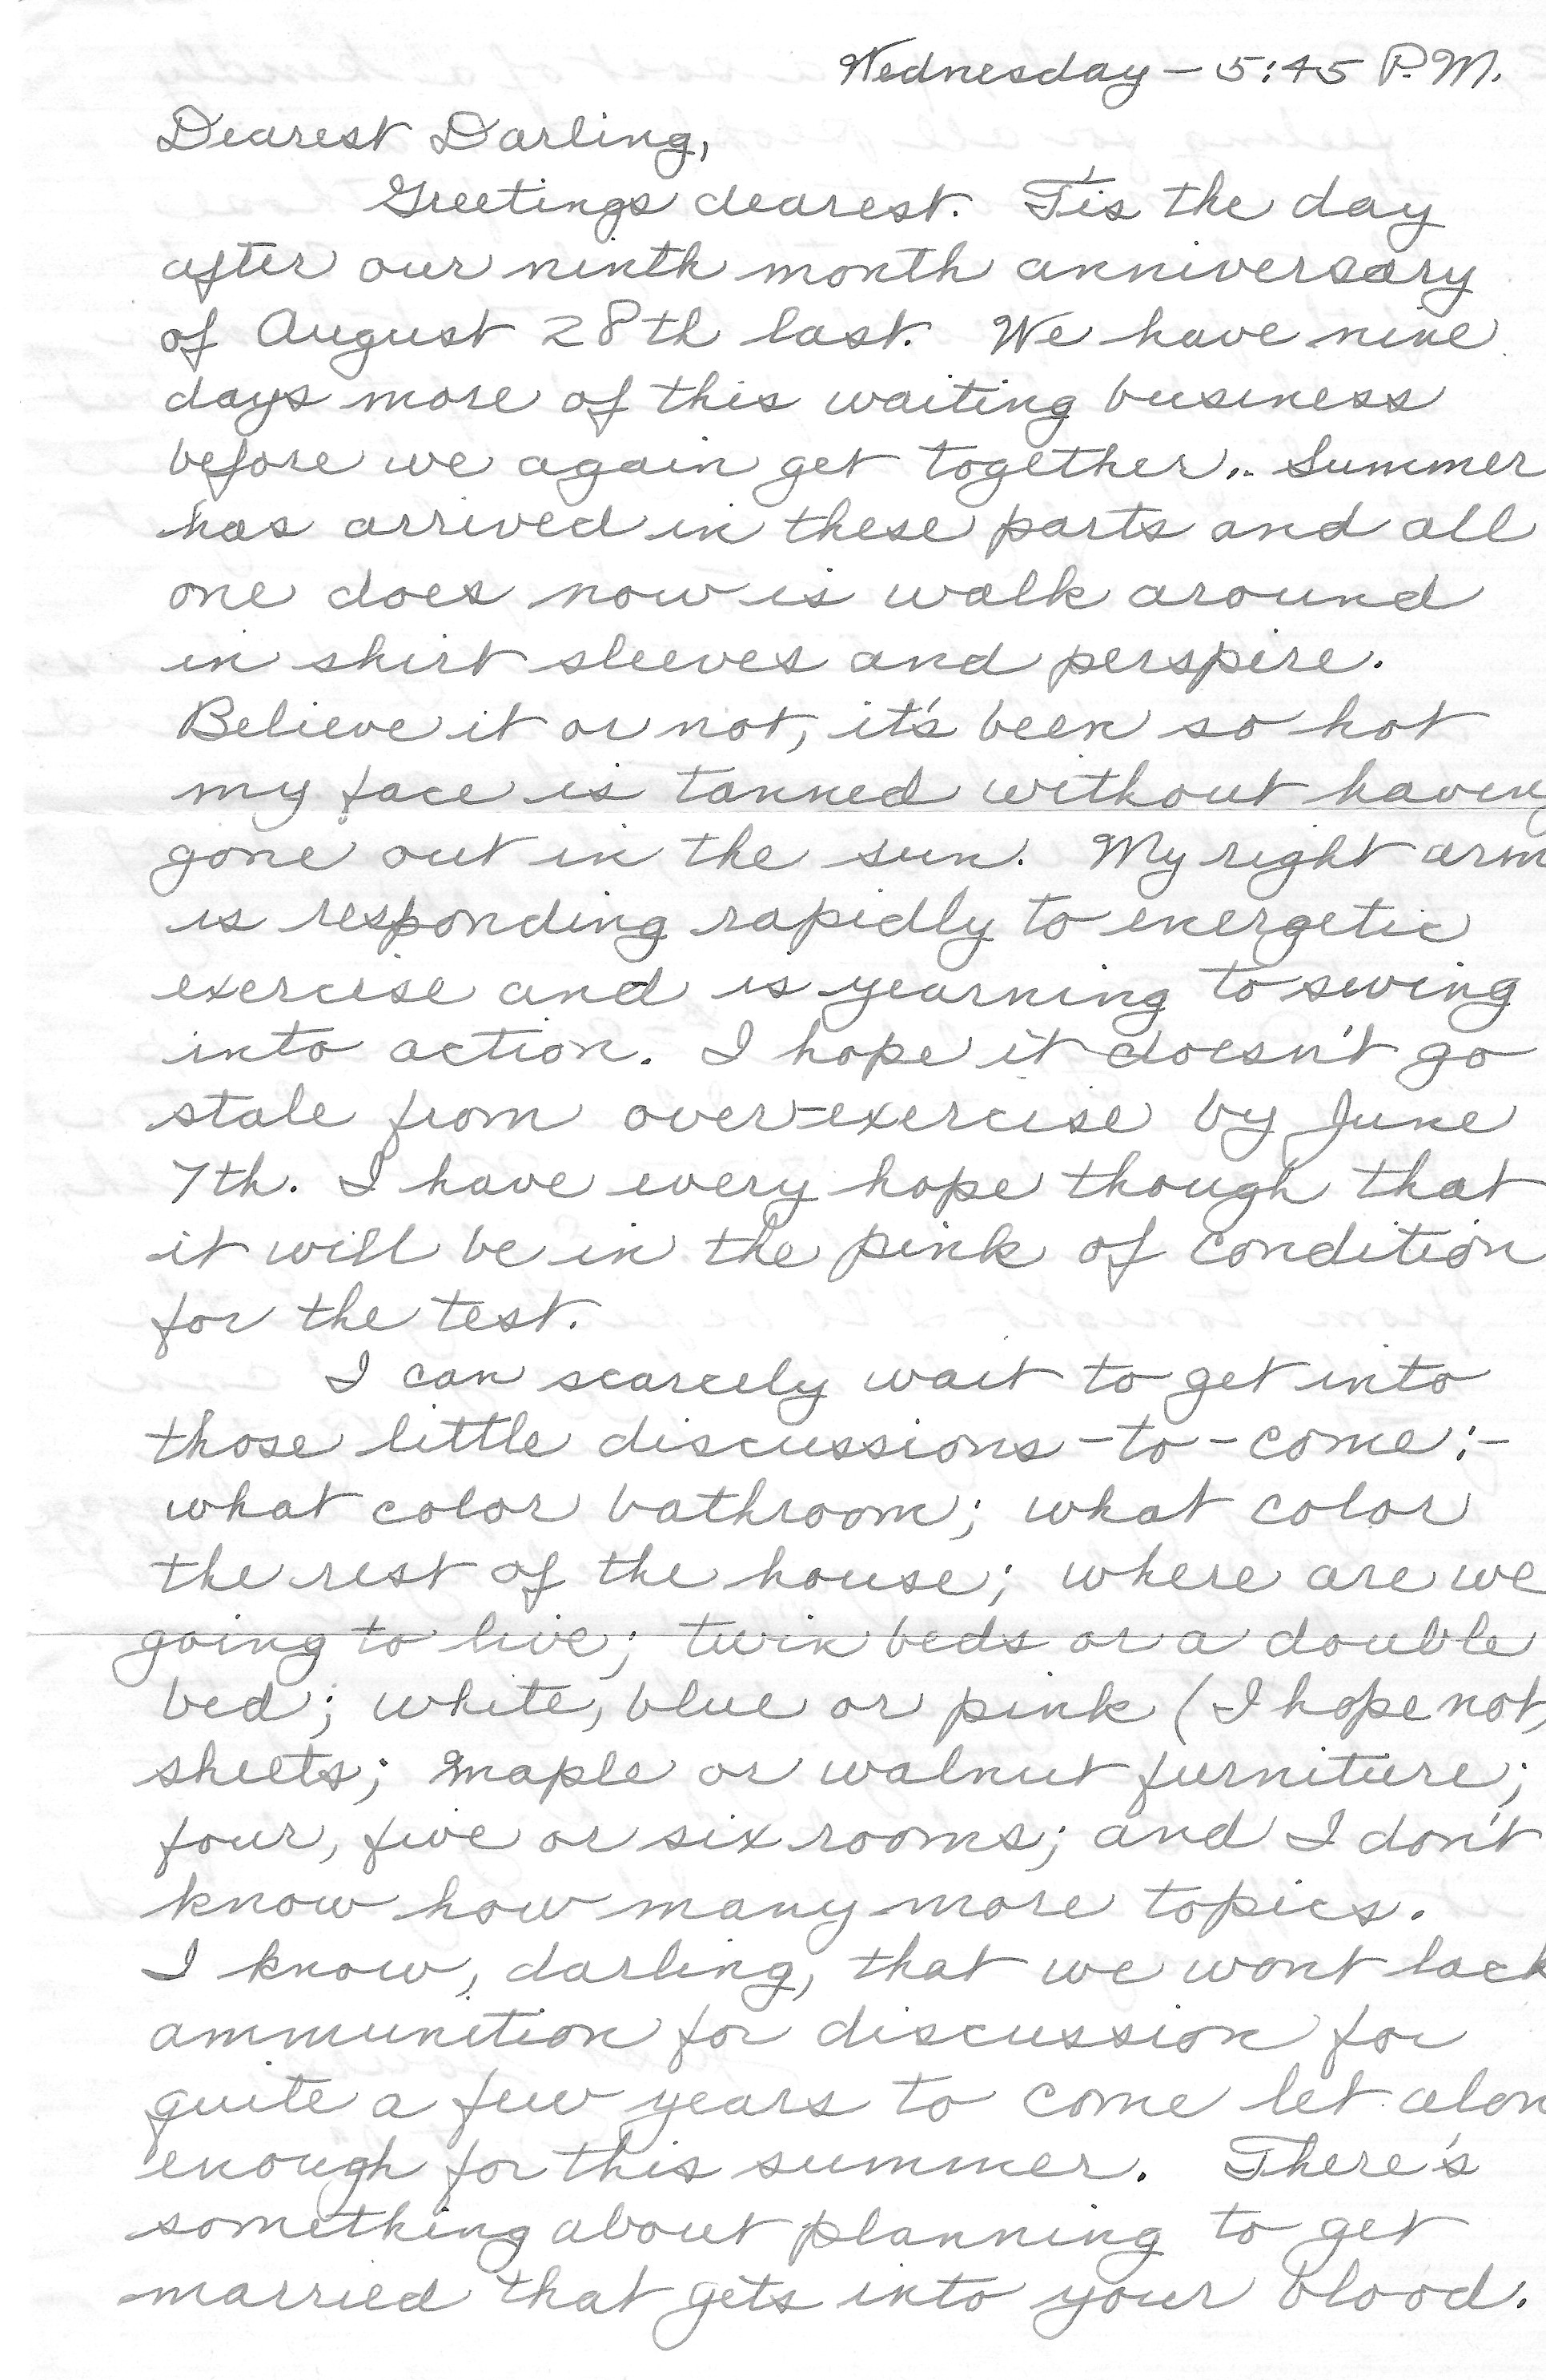 Wednesday – 5:45 P.M.
Dearest Darling,
Greetings dearest. T'is the day
after our ninth month anniversary
of August 28th last. We have nine
days more of this waiting business
before we again get together.. Summer
has arrived in these parts and all
one does now is walk around
in shirt sleeves and perspire.
Believe it or not, it's been so hot
my face is tanned without having
gone out in the sun. My right arm
is responding rapidly to energetic
exercise and is yearning to swing
into action. I hope it doesn't go
stale from over-exercise by June
7th. I have every hope though that
it will be in the pink of condition
for the test.
I can scarcely wait to get into
those little discussions-to-come:-
what color bathroom; what color
the rest of the house; where are we
going to live; twin beds or a double
bed; white, blue or pink (I hope not)
sheets; maple or walnut furniture;
four, five or six rooms; and I don't
know how many more topics.
I know, darling, that we wont lack
ammunition for discussion for
quite a few years to come let alon
enough for this summer. There's
something about planning to get
married that gets into your blood.